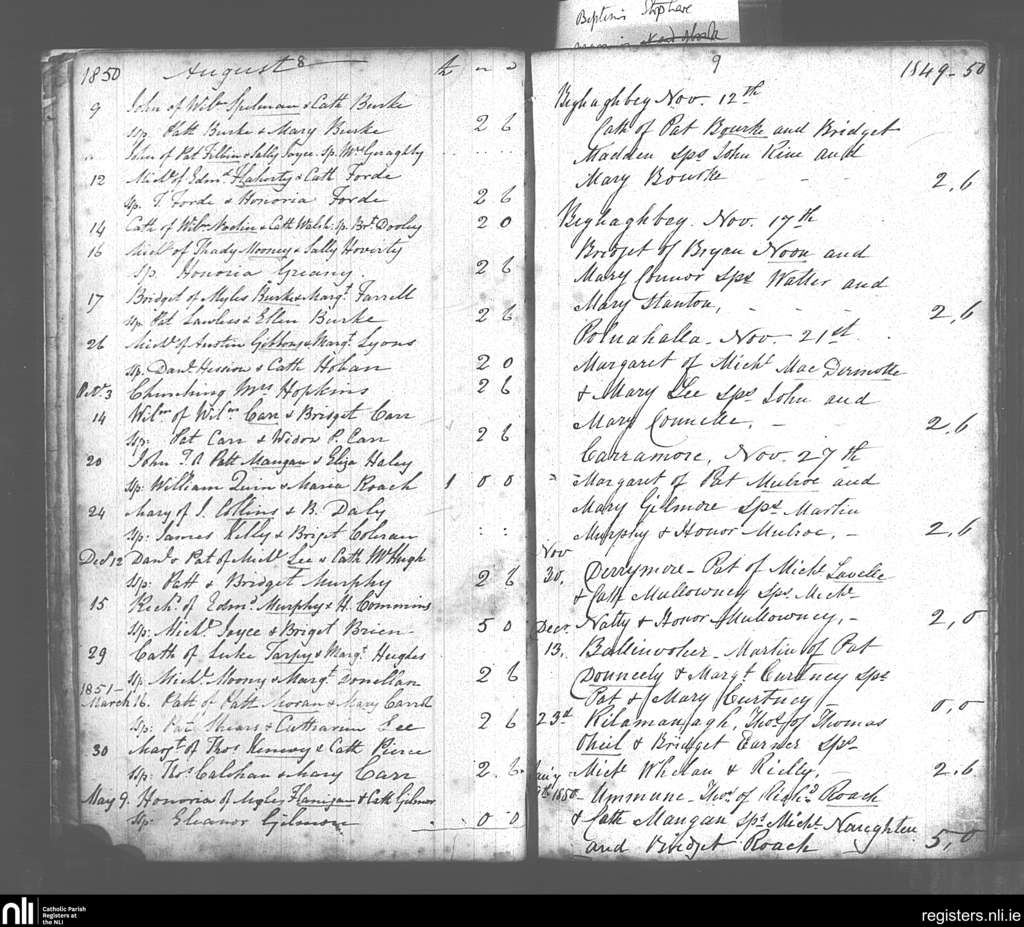 Baptisms
1850 August 8
9 John of Wilm Spelman & Cath Burke
sp. Patt Burke & Mary Burke 2 6
John of Pat Fillin & Sally Joyce. Sp. Mrs Geraghty
12 Michl of Edmd Flaherty & Cath Forde
sp. T. Forde & Honoria Forde 2 6
14 Cath of Wilm Noelin & Cath Walsh. sp. Bt. Dooley 2 0
16 Michl of Thady Mooney & Sally Hoverty
sp. Honoria Greany. 2 6
17 Bridget of Myles Burke & Margt. Farrell
sp. Pat Lawless & Ellen Burke 2 6
26 Michl of Austin Gibbons & Margt. Lyons
sp. Danl. Hession & Cath Hoban 2 0
3 Churching Mrs Hopkins 2 6
14 Wilm of Wilm Carr & Bridget Carr
sp: Pat Carr & Widow P. Carr 2 6
20 John Patt Mangan & Eliza Haley
Sp: William Quin & Maria Roach 1 0 0
24 Mary of J. Collins & B. Daly
sp: James Kelly & Briget Coleran
Decr 12 Danl & Pat of Michl Lee & Cath McHugh
sp: Patt & Bridget Murphy 2 6
15 Richd. of Edmd Murphy & H. Commins
sp: Michl. Joyce & Briget Brien 5 0
29 Cath of Luke Tarpy & Margt. Hughes
sp. Michl. Moony & Margt. Donellan 2 6
1851
March 16. Patt of Patt Moran & Mary Carrol
sp: Pat Mears & Catharine Lee 2 6
30 Margt of Thos Kenny & Cath Pierce
sp: Thos Calohan & Mary Carr 2. 6.
May 9. Honoria of Myles Flanigan & Cath Gilmor
Sp: Eleanor Gilmore 0 0
9 1849-50
Beghaghbey Nov. 12th
Cath of Pat Bourke and Bridget
Madden sps John Rine and
Mary Bourke 2,6
Beghaghbey. Nov. 17th
Bridget of Bryan Noon and
Mary Connor Sps Walter and
Mary Stanton, 2,6
Polnahalla. Nov. 21st.
Margaret of Michl Mac Dermotte
& Mary Lee Sps John and
Mary Connelle, 2,6
Carramore, Nov. 27th
Margaret of Pat Mulroe and
Mary Gilmore Sps Martin
Murphy & Honor Mulroe, 2,6
Nov
30, Derrymore - Pat of Michl Lavelle
& Cath Mullowney Sps Michl
Natty & Honor Mullowney, 2,0
Decr.
13, Ballinvoher - Martin of Pat
Donneely & Margt Curtney sps
Pat & Mary Curtney 0,0
23d Kilamanjagh, Thos. of Thomas
Oheil & Bridget Earner sps
Michl Whelan & Rielly, 2,6
Jany
9th 1850 - Ummune - Thos of Richd Roach
& Cath Mangan Sps Michl Naughten
and Bridget Roach 5,0
nli
Catholic Parish
Registers at
the NLI
registers.nli.ie